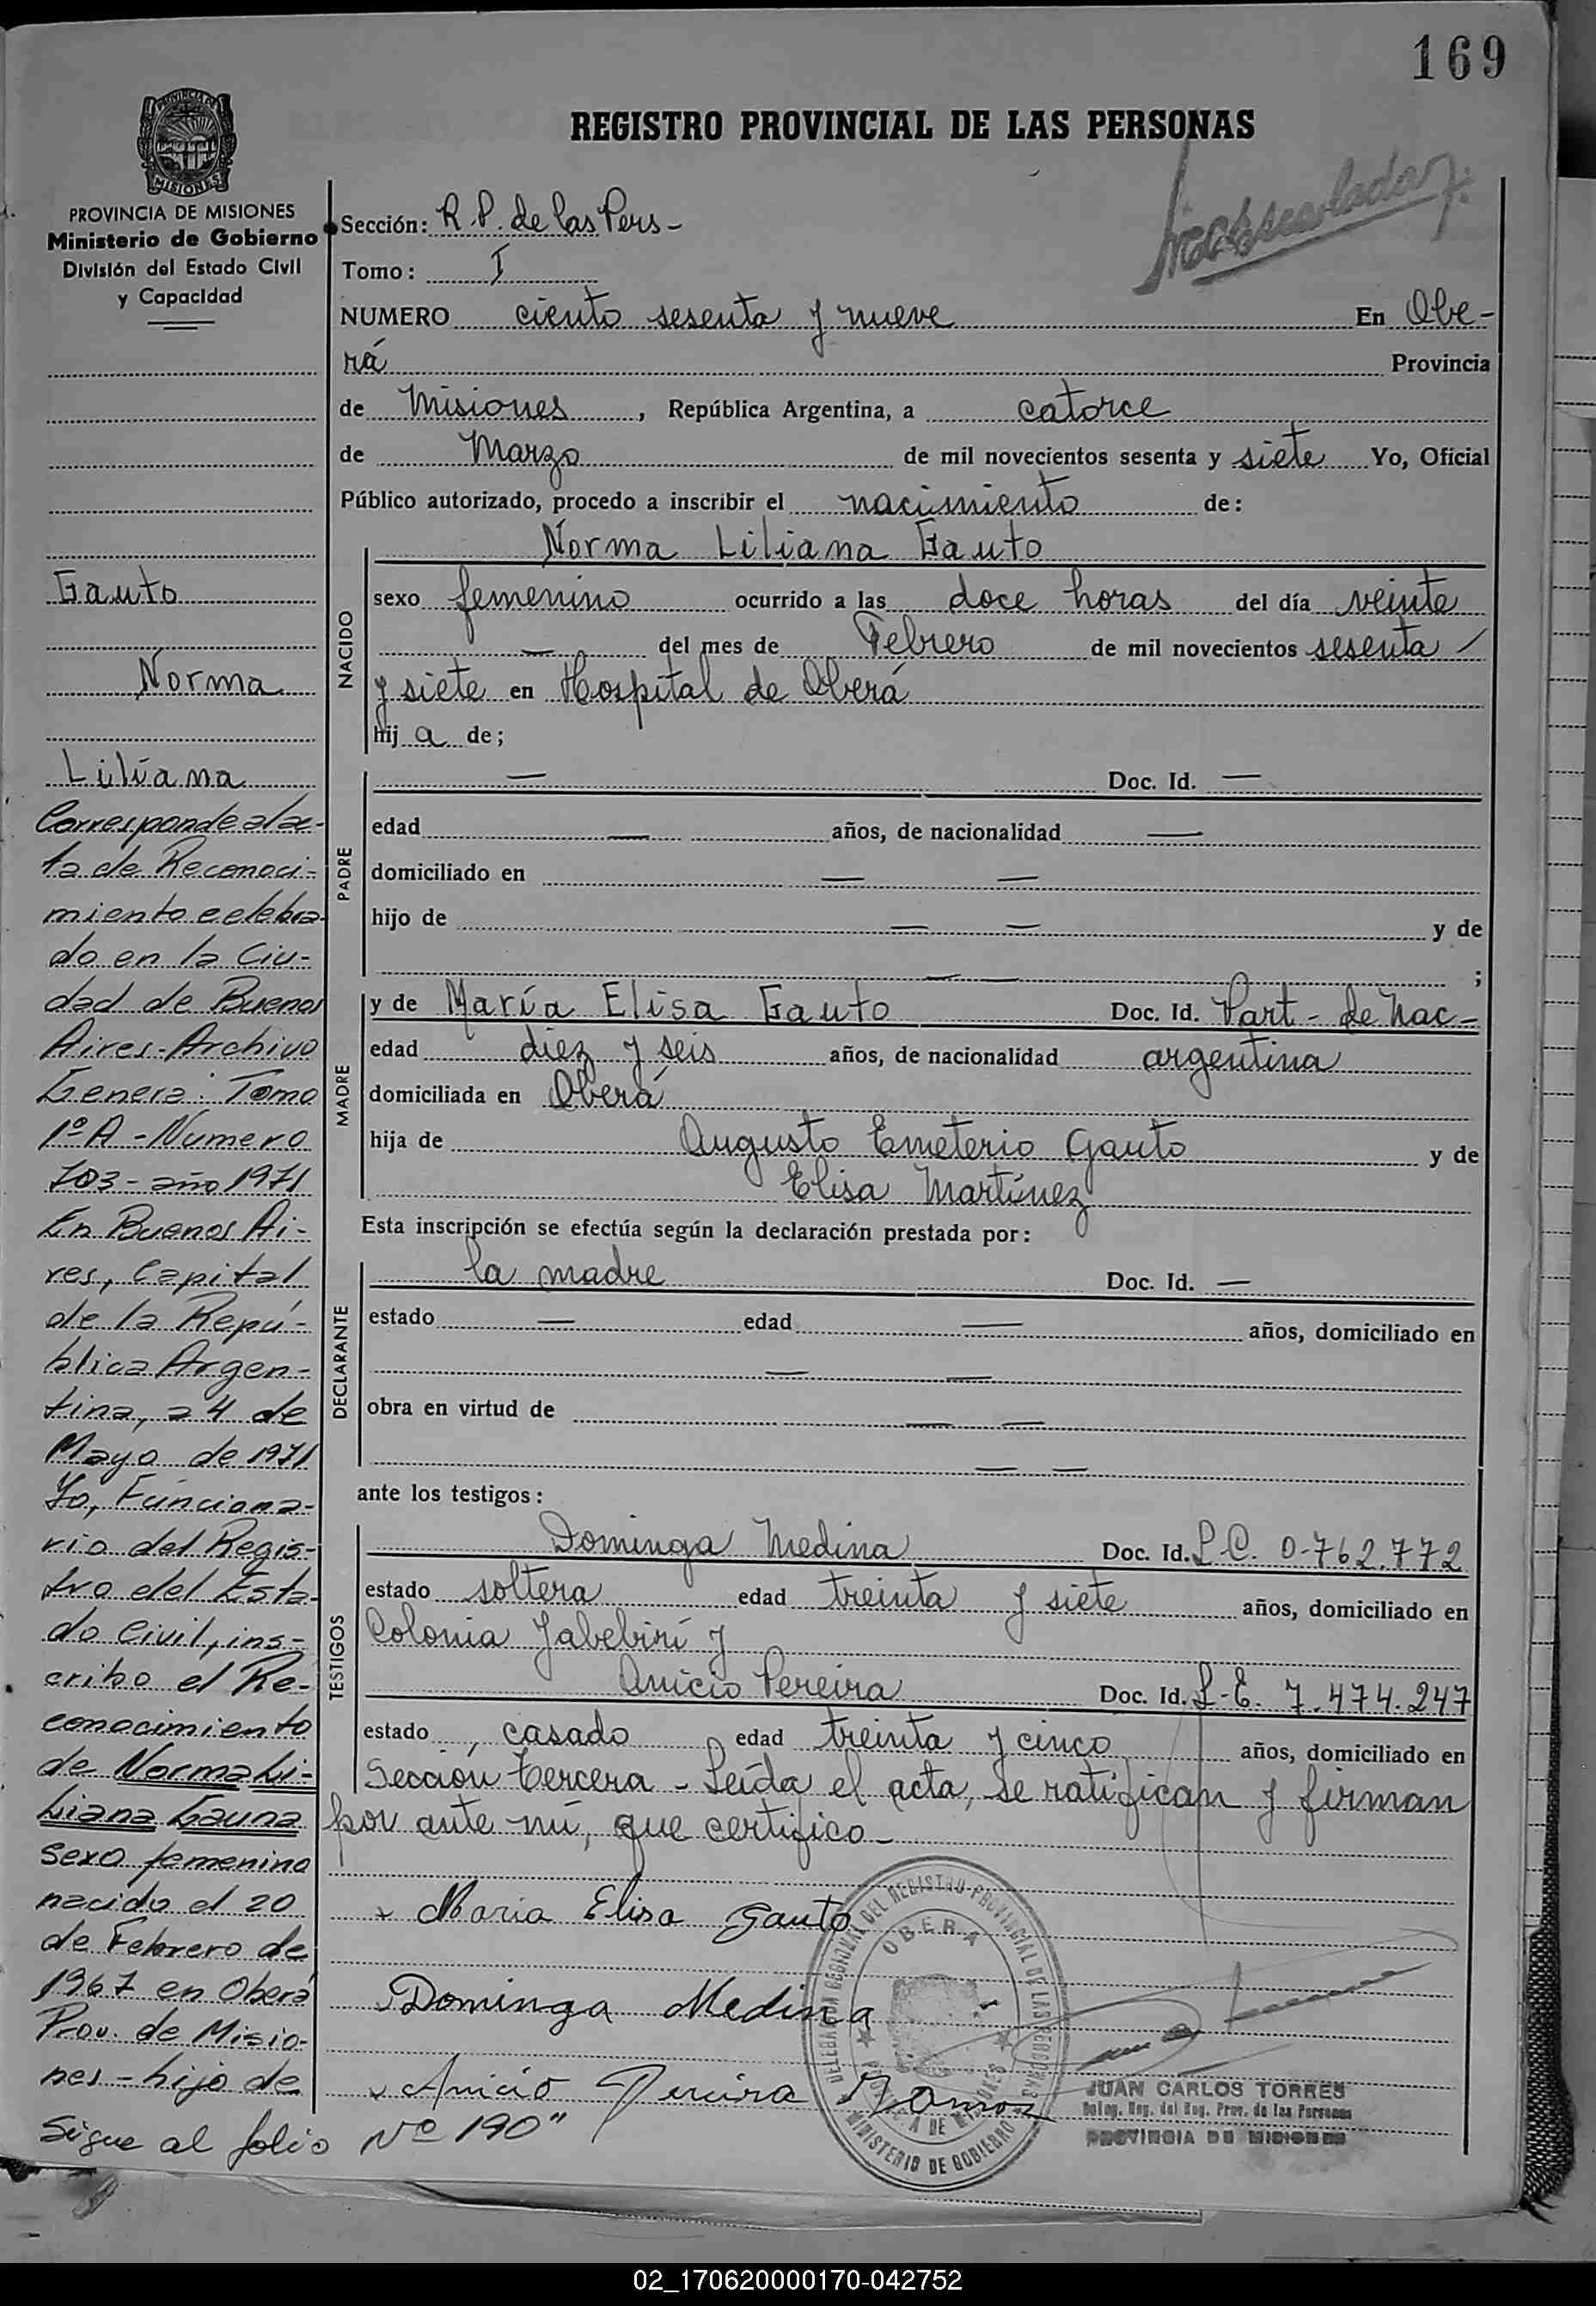 169
REGISTRO PROVINCIAL DE LAS PERSONAS
PROVINCIA DE MISIONES
MISIONES
PROVINCIA DE MISIONES
Ministerio de Gobierno
División del Estado Civil
y Capacidad
Sección: R. P. de las Pers-
Tomo: I
NUMERO ciento sesenta y nueve En Obe-
rá Provincia
de Misiones, República Argentina, a catorce
de Marzo de mil novecientos sesenta y siete Yo, Oficial
Público autorizado, procedo a inscribir el nacimiento de:
Norma Liliana Gauto
NACIDO
sexo femenino ocurrido a las doce horas del día veinte
— del mes de Febrero de mil novecientos sesenta /
y siete en Hospital de Oberá
hij a de;
PADRE
— Doc. Id. —
edad — años, de nacionalidad —
domiciliado en — —
hijo de — — y de
— — ;
MADRE
y de María Elisa Gauto Doc. Id. Part- de Nac-
edad diez y seis años, de nacionalidad argentina
domiciliada en Oberá
hija de Augusto Emeterio Gauto y de
Elisa Martínez
Esta inscripción se efectúa según la declaración prestada por:
DECLARANTE
la madre Doc. Id. —
estado — edad — años, domiciliado en
— —
obra en virtud de — —
— —
ante los testigos:
TESTIGOS
Dominga Medina Doc. Id. L-C. 0-762.772
estado soltera edad treinta y siete años, domiciliado en
Colonia Yabebirí y
Anicio Pereira Doc. Id. L-E. 7.474.247
estado, casado edad treinta y cinco años, domiciliado en
Sección tercera - Leída el acta, se ratifican y firman
por ante mí, que certifico-
Maria Elisa Gauto
Dominga Medina
Anicio Pereira Ramos
DELEGACION REGIONAL DEL REGISTRO PROVINCIAL DE LAS PERSONAS
OBERA
MINISTERIO DE GOBIERNO
JUAN CARLOS TORRES
Deleg. Reg. del Reg. Prov. de las Personas
PROVINCIA DE MISIONES
Gauto
Norma
Liliana
Corresponde al ac-
ta de Reconoci-
miento celebra-
do en la Ciu-
dad de Buenos
Aires-Archivo
General Tomo
1º A - Número
703 - año 1971
En Buenos Ai-
res, Capital
de la Repú-
blica Argen-
tina, a 4 de
Mayo de 1971
Yo, Funciona-
rio del Regis-
tro del Esta-
do Civil, ins-
cribo el Re-
conocimiento
de Norma Li-
liana Gauna
sexo femenino
nacido el 20
de Febrero de
1967 en Oberá
Prov. de Misio-
nes - hijo de
Sigue al folio Nº 190"
02_170620000170-042752